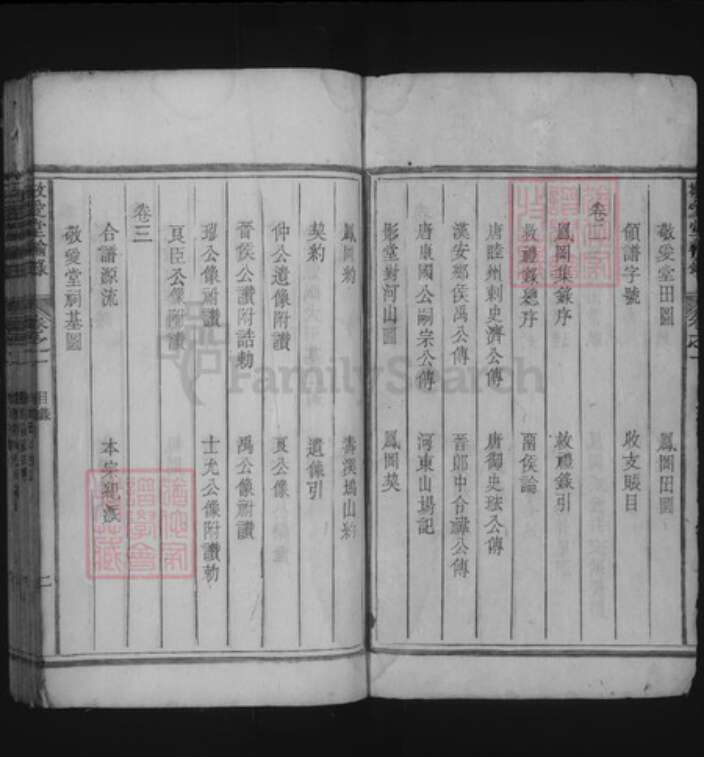 敬愛堂田圖 鳳岡田圖
領譜字號 收支賬目
卷二
鳳岡集錄序 敦禮錄引
敦禮錄總序 菑侯論
唐睦州刺史濟公傳 唐御史琺公傳
漢安鄉侯禹公傳 晉郎中令禕公傳
唐康國公嗣宗公傳 河東山場記
影堂對河山圖 鳳岡契
鳳岡約 壽溪塢山約
契約 遺像引
仲公遺像附讚 夏公像
晉侯公讚附誥勅 禹公像附讚
璆公像附讚 士允公像附讚勅
良臣公像附讚
卷三
合譜源流 本宗總系
敬愛堂祠基圖
敬愛堂
目錄
二
FamilySearch